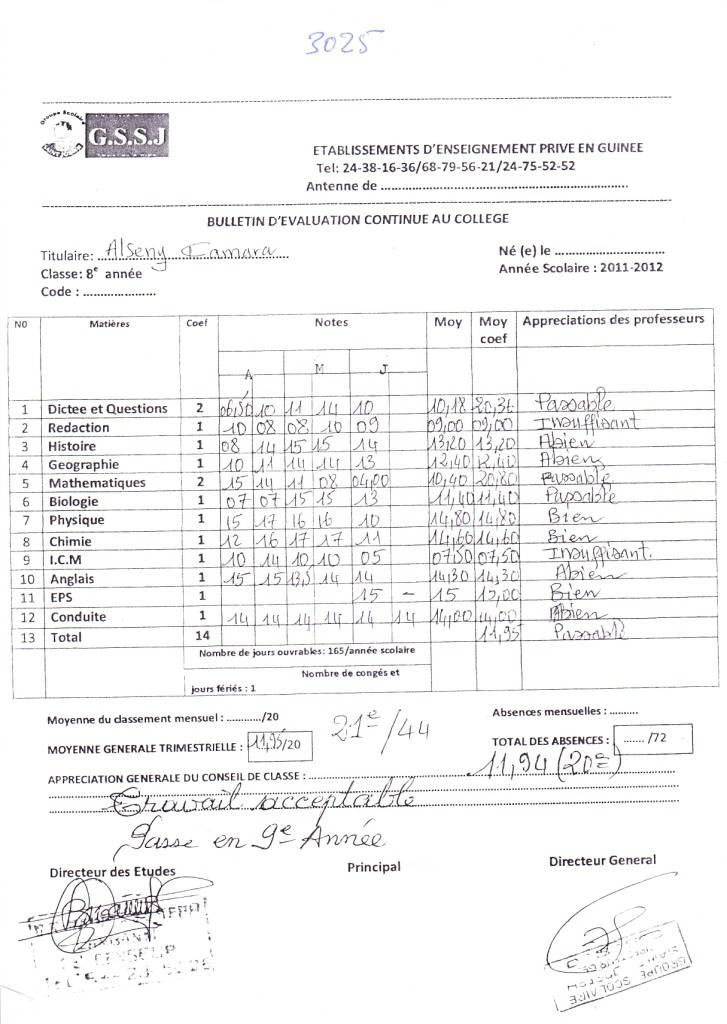 3025
Groupe Scolaire
G.S.S.J
ETABLISSEMENTS D'ENSEIGNEMENT PRIVE EN GUINEE
Tel: 24-38-16-36/68-79-56-21/24-75-52-52
Antenne de ..........
BULLETIN D'EVALUATION CONTINUE AU COLLEGE
Titulaire: Alseny Camara
Né (e) le ..........
Classe: 8e année
Année Scolaire : 2011-2012
Code : ..........
N0 Matières Coef Notes Moy Moy coef Appreciations des professeurs
A M J
1 Dictee et Questions 2 06,50 10 11 14 10 10,18 20,36 Passable
2 Redaction 1 10 08 08 10 09 09,00 09,00 Insuffisant
3 Histoire 1 08 14 15 15 14 13,20 13,20 Abien
4 Geographie 1 10 11 14 14 13 12,40 12,40 Abien
5 Mathematiques 2 15 14 11 08 04,00 10,40 20,80 Passable
6 Biologie 1 07 07 15 15 13 11,40 11,40 Passable
7 Physique 1 15 17 16 16 10 14,80 14,80 Bien
8 Chimie 1 12 16 17 17 11 14,60 14,60 Bien
9 I.C.M 1 10 14 10,10 05 07,50 07,50 Insuffisant.
10 Anglais 1 15 15 13,5 14 14 14,30 14,30 Abien
11 EPS 1 15 - 15 15,00 Bien
12 Conduite 1 14 14 14 14 14 14 14,00 14,00 Abien
13 Total 14 11,95 Passable
Nombre de jours ouvrables: 165/année scolaire
Nombre de congés et
jours fériés : 1
Moyenne du classement mensuel : ............/20
Absences mensuelles : ..........
21e/44
MOYENNE GENERALE TRIMESTRIELLE : 11,95/20
TOTAL DES ABSENCES : ....... /72
11,94 (20e)
APPRECIATION GENERALE DU CONSEIL DE CLASSE : ..........
Travail acceptable
Passe en 9e Année
Directeur des Etudes
Principal
Directeur General
GROUPE SCOLAIRE